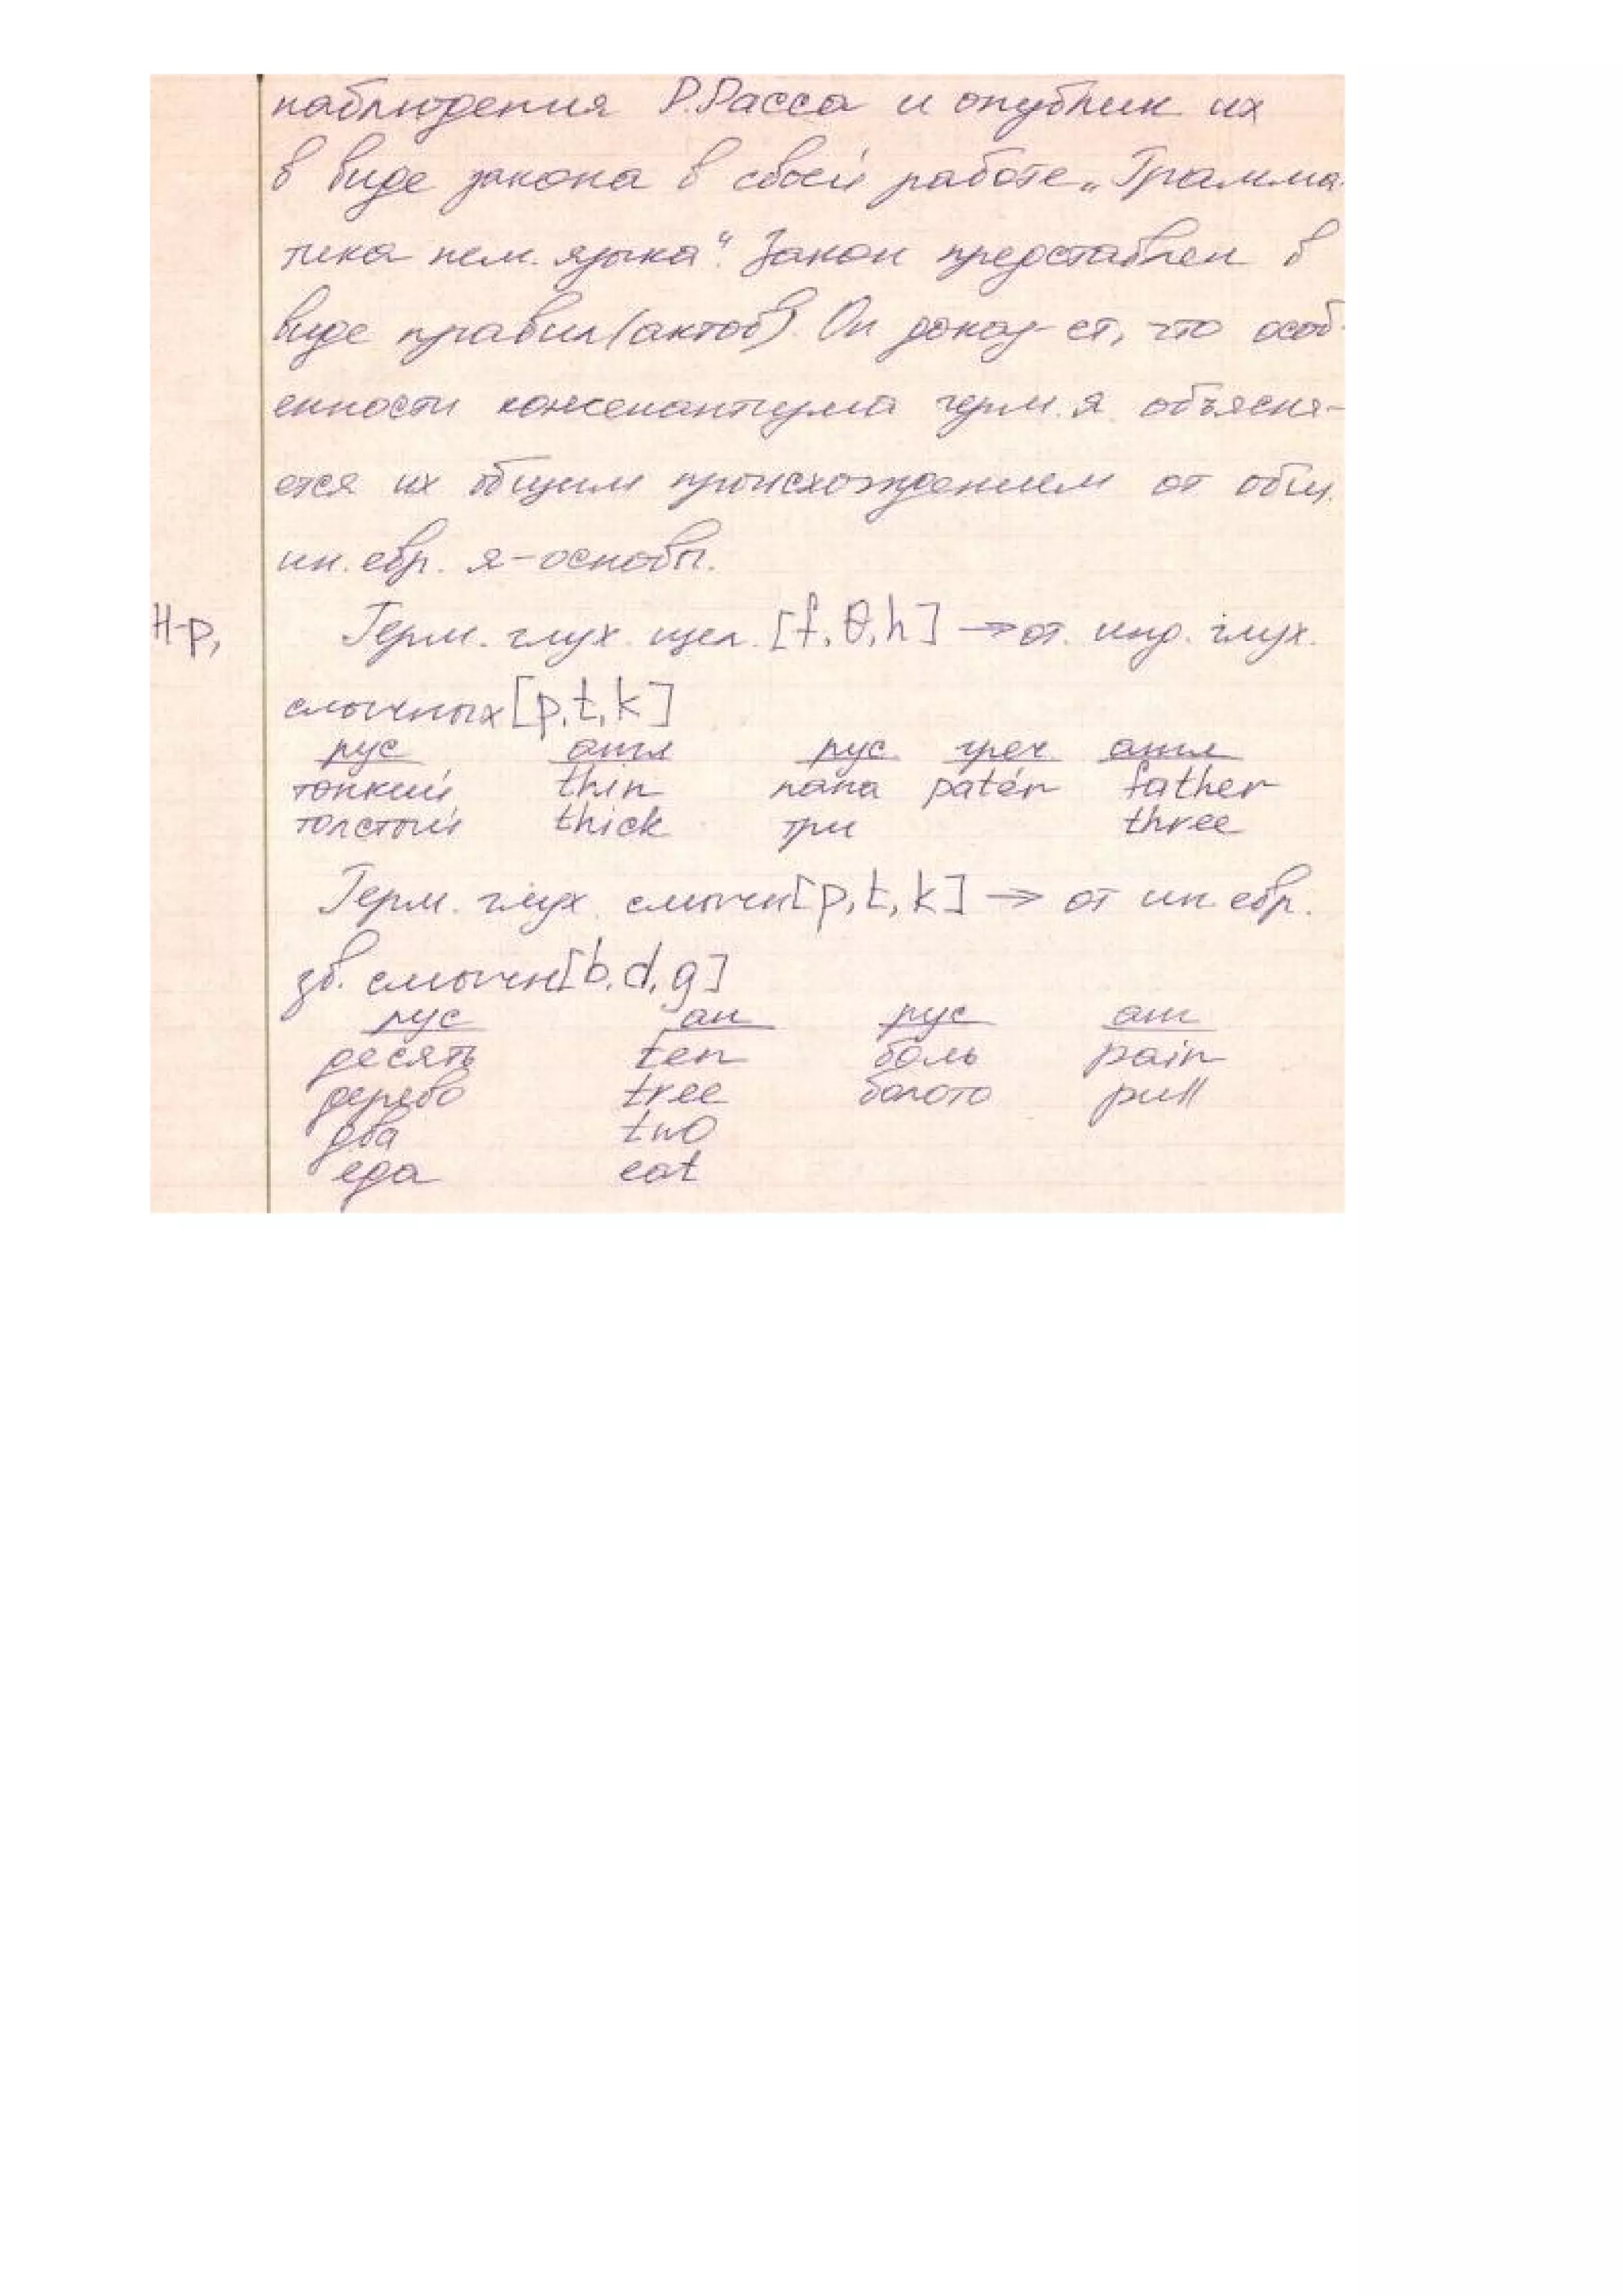 наблюдения Р.Расса и опублик их
в виде закона в своей работе „Грамма-
тика нем. языка“. Закон представлен в
виде правил (актов). Он доказ-ет, что особ-
енности консенантизма герм. я. объясня-
ется их общим происхождением от общ.
ин. евр. я-основы.
Н-р, Герм. глух. щел. [f, θ, h] → от. инд. глух.
смычных [p, t, k]
рус англ рус. греч. англ
тонкий thin папа patér father
толстый thick три three
Герм. глух. смычн [p, t, k] → от ин. евр.
зв. смычн [b, d, g]
рус ан рус анг
десять ten боль pain
дерево tree болото pull
два two
еда eat